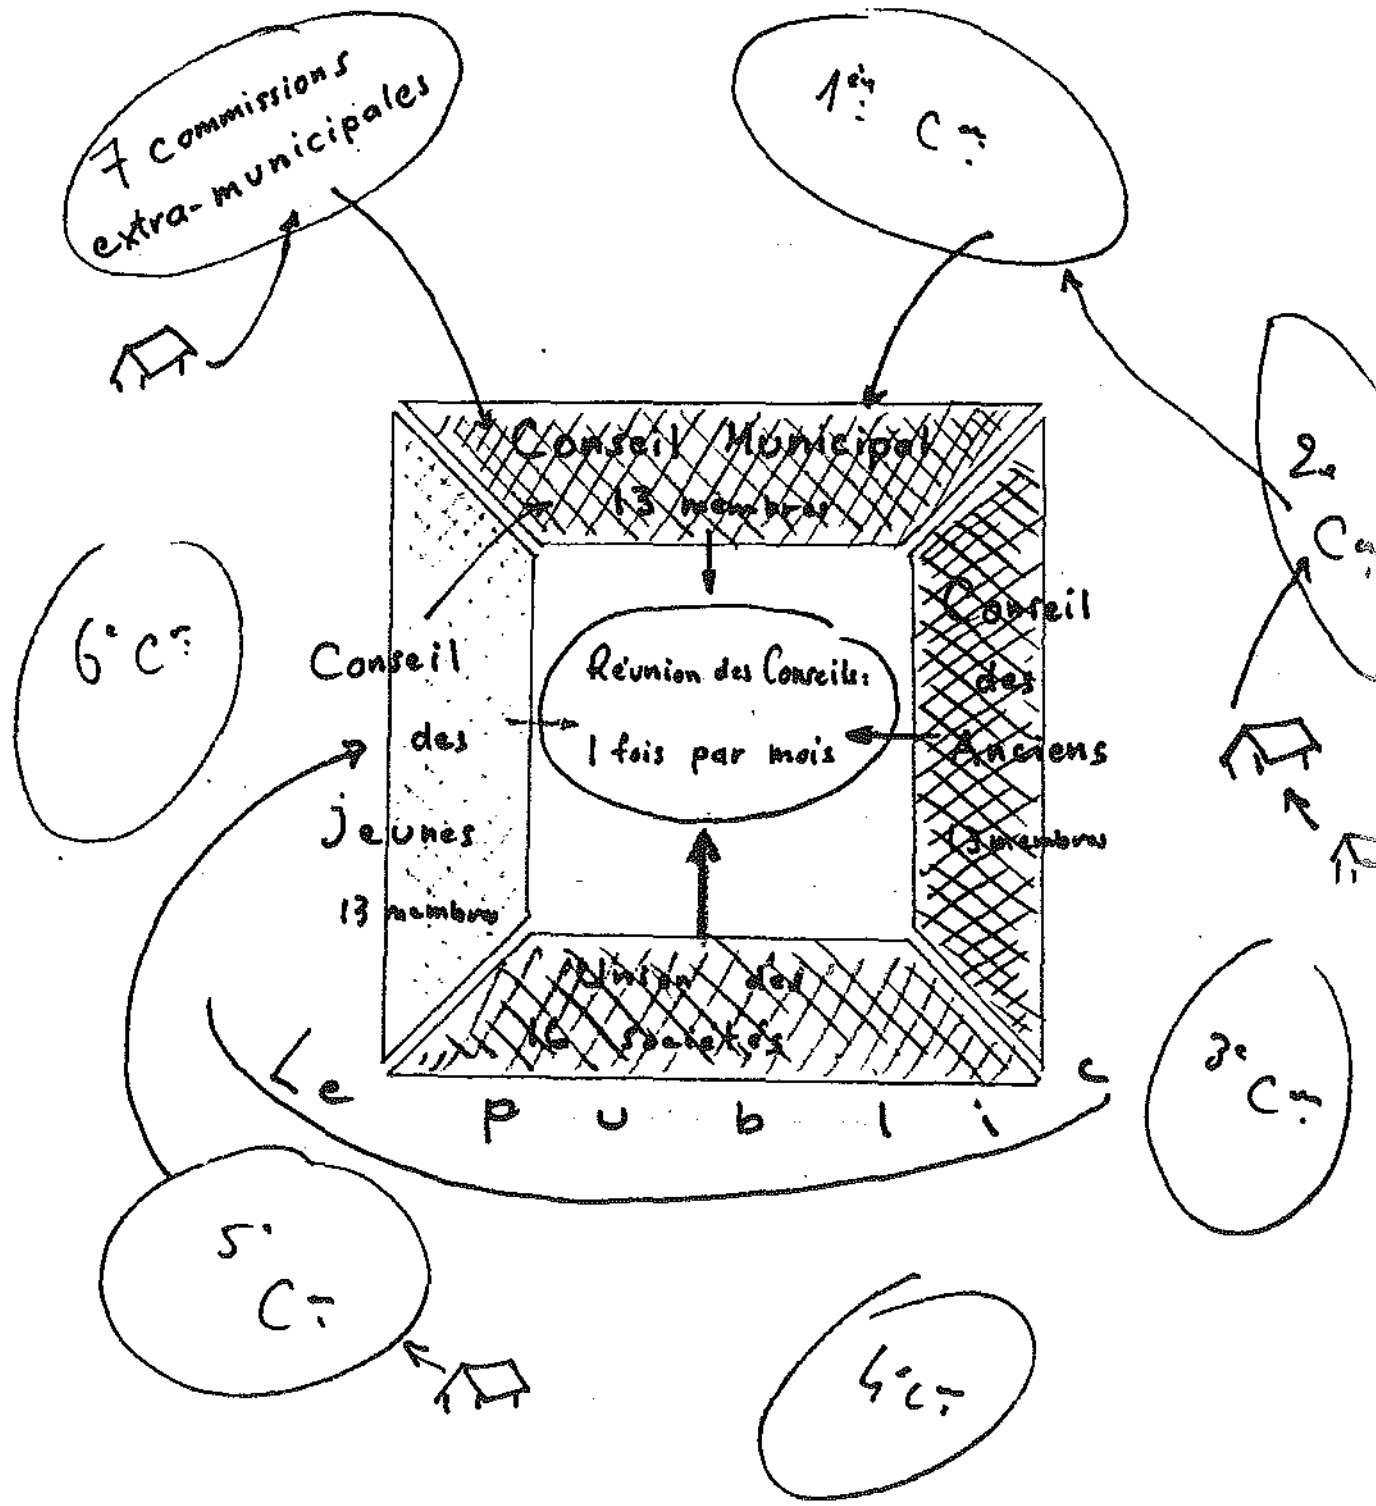 7 commissions
extra-municipales
1èr
Cn
2e
Cn
Conseil Municipal
13 membres
Conseil
des
jeunes
13 membres
Réunion des Conseils:
1 fois par mois
Conseil
des
Anciens
13 membres
Union des
16 Sociétés
Le public
6e Cn
3e
Cn
5e
Cn
4e Cn